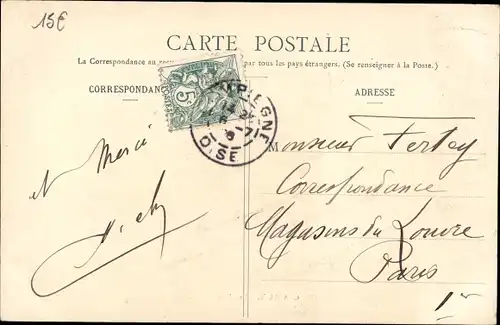 15€
CARTE POSTALE
La Correspondance au par tous les pays étrangers. (Se renseigner à la Poste.)
CORRESPONDANCE
ADRESSE
5
PIEGNE
OISE
Monsieur Fertey
Correspondance
Magasins du Louvre
Paris
1er
et Merci